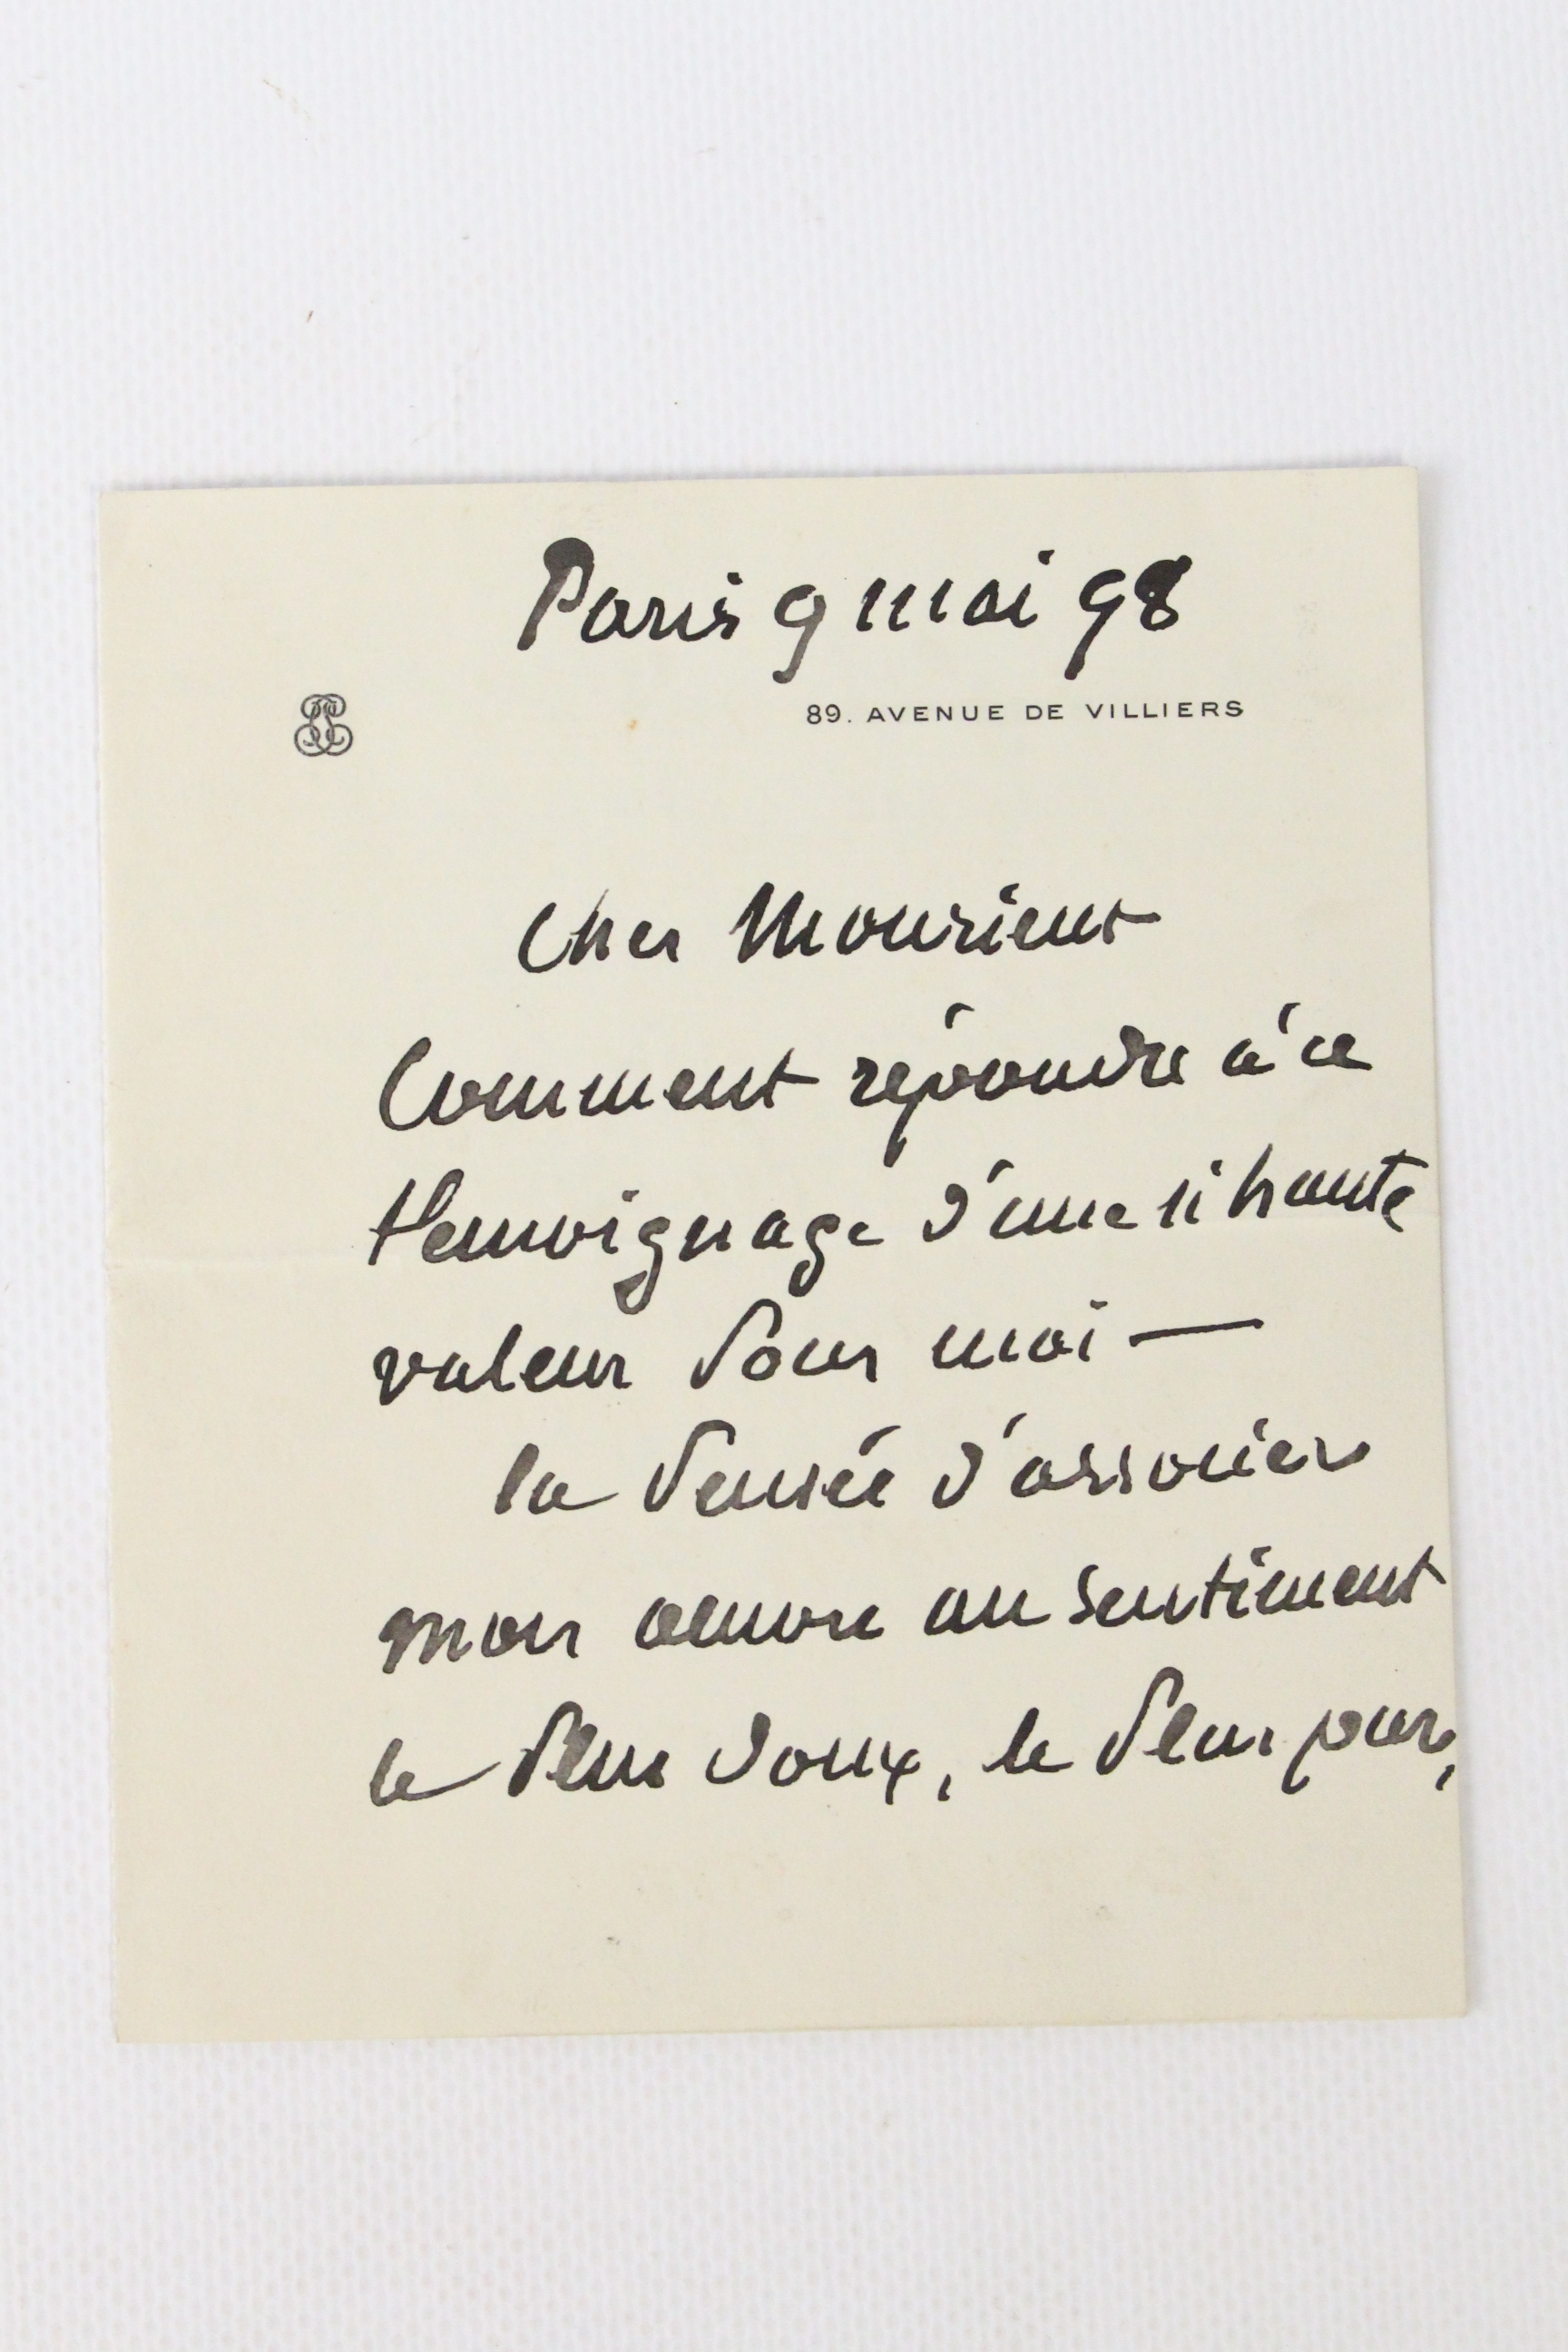 Paris 9 mai 98
89. AVENUE DE VILLIERS
Cher Monsieur
Comment répondre à ce
témoignage d'une si haute
valeur pour moi —
la pensée d'associer
mon œuvre au sentiment
le plus doux, le plus pur,